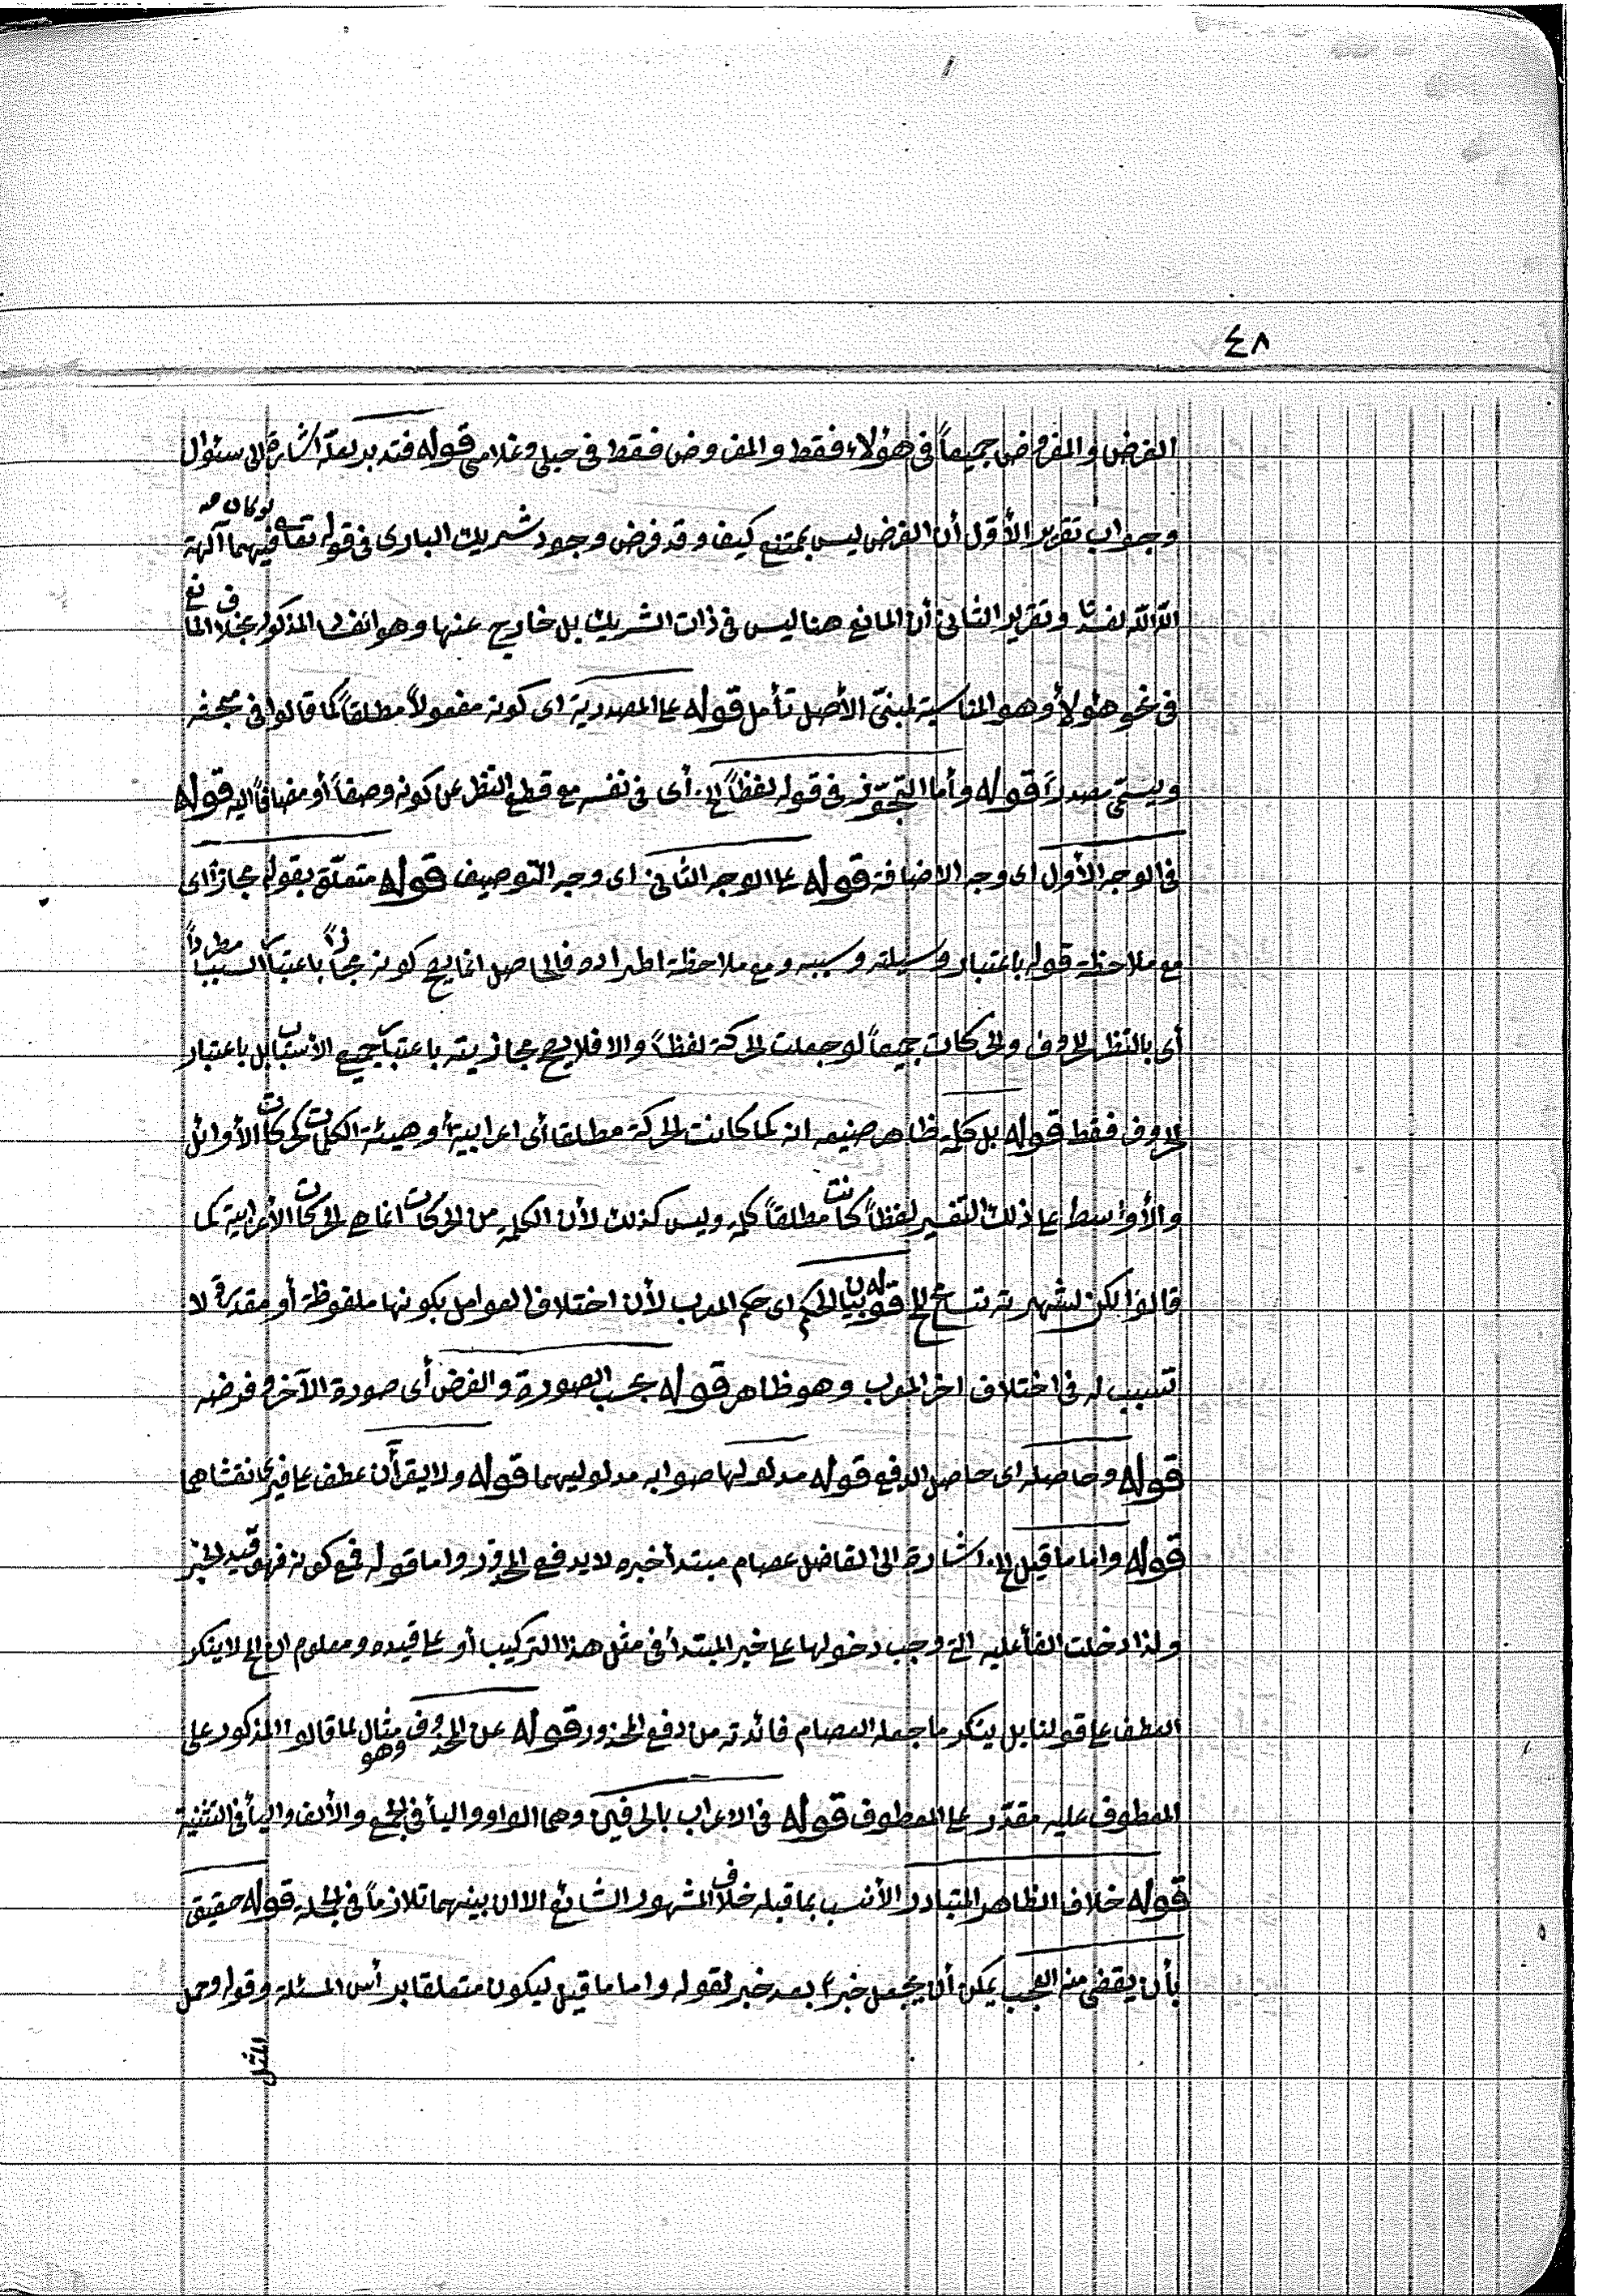 ٤٨
الفرض والمفروض جميعاً فى هؤلاء فقط والمفروض فقط فى حبلى وغلامى قوله فتدبر لعلّه اشارة الى سئوال
وجواب تقرير الأوّل أن الفرض ليس بممتنع كيف وقد فرض وجود شريك البارى فى قوله تعا لو كان فيهما آلهة
الا اللّه لفسدتا وتقرير الثانى أن المانع هنا ليس فى ذات الشريك بل خارج عنها وهو المذكور بخلاف المانع
فى نحو هؤلاء وهو المناسبة لمبنىّ الأصل تأمل قوله عل المصدرية اى كونه مفعولاً مطلقاً كما قالوا فى بحثه
ويسمّى مصدراً قوله وأما التجوّز فى قوله لفظاً الخ أى فى نفسه مع قطع النظر عن كونه وصفاً أو مضافاً اليه قوله
فى الوجه الأول اى وجه الاضافة قوله عل الوجه الثانى اى وجه التوصيف قوله متعلّق بقوله مجازاً اى
مع ملاحظة قوله باعتبار وسيلته وسببه ومع ملاحظة اطراده فالحاصل انما يصح كونه مجازاً باعتبار السبب مطرداً
أى بالنظر للحروف والحركات جميعاً لو جعلت الحركة لفظاً والا فلا يصح مجازيته باعتبار جميع الأسباب بل باعتبار
الحروف فقط قوله بل كلمة ظاهر صنيعه انه كما كانت الحركة مطلقا أى اعرابية أو هيئة الكلمات كحركات الأوائل
والأواسط عل ذلك التفسير لفظاً كانت مطلقاً كلمة وليس كذلك لأن الكلمة من الحركات انما هى الحركات الأعرابية كما
قالوا لكن لشهرته تسامح الخ قوله بيان الحكم اى حكم المعرب لأن اختلاف العوامل بكونها ملفوظة أو مقدرة لا
تسبب له فى اختلاف اخر المعرب وهو ظاهر قوله بحسب الصورة والفرض أى صورة الآخر وفرضه
قوله وحاصله اى حاصل الدفع قوله مدلولها صوابه مدلوليهما قوله ولا يقرأن عطف عل
قوله واما ما قيل الخ اشارة الى الفاضل عصام مبتدأ خبره لا يدفع المحذور واما قوله فمع كونه فهو قيد الخبر
ولذا دخلت الفأ عليه التى وجب دخولها عل خبر المبتدأ فى مثل هذا التركيب أو عل قيده ومعلوم ان لا ينكر
العطف عل قولنا بل ينكر ما جعله العصام فائدته من دفع المحذور قوله عن المحذوف وهو مثال لما قالوا المذكور على
المعطوف عليه مقدّر عل المعطوف قوله فى الاعراب بالحرفين وهما الواو واليأ فى الجمع والألف واليأ فى التثنية
قوله خلاف الظاهر المتبادر الأنسب بما قبله خلاف المشهور الشائع الا ان بينهما تلازماً فى الجملة قوله حقيق
بأن يقضى منه العجب يمكن أن يجعل خبراً بعد خبر لقوله واما ما قيل ليكون متعلقا برأس المسئلة وقوله وحمل